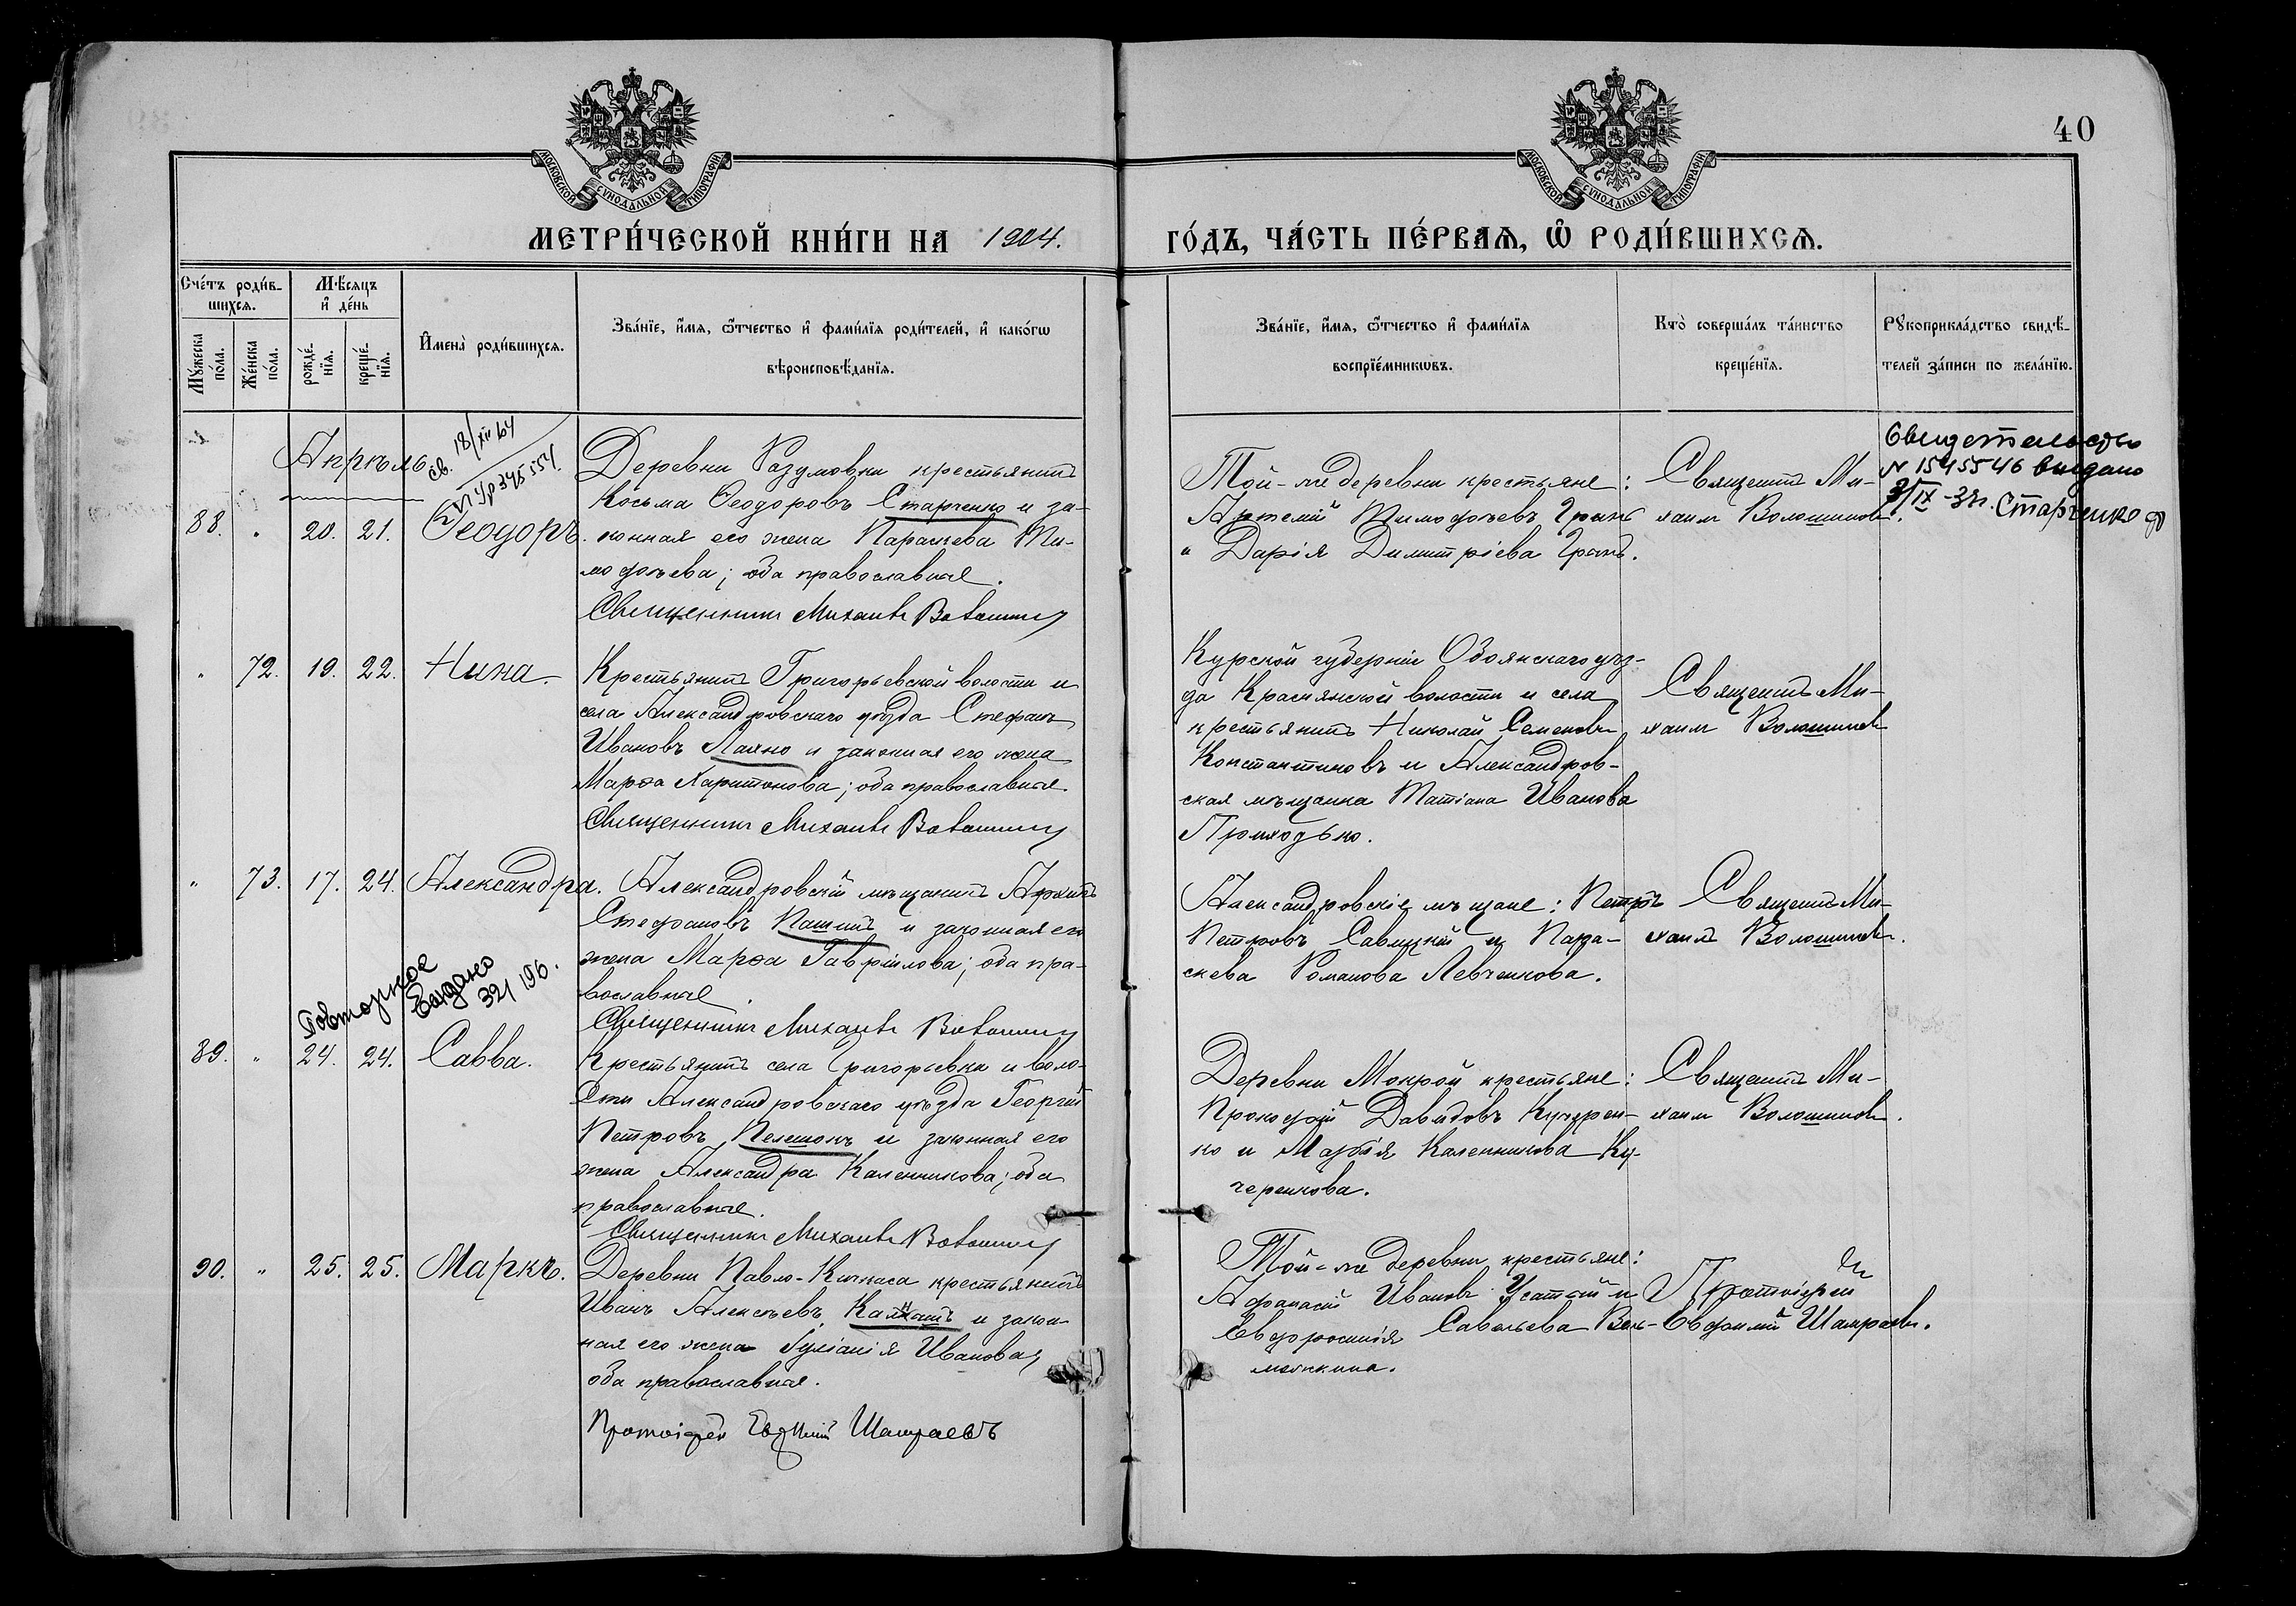 МОСКОВСКОЙ СѴНОДАЛЬНОЙ ТИПОГРАФІИ
МОСКОВСКОЙ СѴНОДАЛЬНОЙ ТИПОГРАФІИ
40
МЕТРИ́ЧЕСКОЙ КНИ́ГИ НА 1904.
ГО́ДЪ, ЧА́СТЬ ПЕ́РВАѦ, Ѡ҆ РОДИ́ВШИХСѦ.
Сче́тъ роди́в-
шихсѧ.
Мѣ́сѧцъ
и҆ де́нь
Мꙋ́жеска
по́ла.
Же́нска
по́ла.
рожде́-
нїѧ.
креще́-
нїѧ.
И҆мена̀ роди́вшихсѧ.
Зва́нїе, и҆́мѧ, ѻ҆́тчество и҆ фами́лїѧ роди́телей, и҆ како́гѡ
вѣроисповѣ́данїѧ.
Зва́нїе, и҆́мѧ, ѻ҆́тчество и҆ фами́лїѧ
воспрїе́мникѡвъ.
Кто̀ соверша́лъ та́инство
креще́нїѧ.
Рꙋкоприкла́дство свидѣ́-
телей за́писи по жела́нїю.
Апрѣль
св. 18/XII 64
88. " 20. 21. Ѳеодоръ.
Деревни Раздумовки крестьянинъ
Косьма Ѳеодоровъ Старченко и за-
конная его жена Параскева Ти-
моѳеева; оба православные.
Священникъ Михаилъ Волошиновъ
Той-же деревни крестьяне:
Артемій Тимоѳеевъ Грынь
и Дарія Димитріева Грынь.
Священникъ Ми-
хаилъ Волошиновъ.
Свидетельство
№ 1545546 выдано
Старченко Ф
" 72. 19. 22. Нина.
Крестьянинъ Григорьевской волости и
села Александровскаго уѣзда Стефанъ
Ивановъ Лахно и законная его жена
Марѳа Харитонова; оба православные
Священникъ Михаилъ Волошиновъ
Курской губерніи Обоянскаго уѣз-
да Краснянской волости и села
крестьянинъ Николай Семеновъ
Константиновъ и Александров-
ская мѣщанка Татіана Иванова
Приходько.
Священникъ Ми-
хаилъ Волошиновъ
" 73. 17. 24. Александра.
Александровскій мѣщанинъ Архипъ
Стефановъ Пашинъ и законная его
жена Марѳа Гавріилова; оба пра-
вославные.
Священникъ Михаилъ Волошиновъ
Александровскіе мѣщане: Петръ
Петровъ Савицкій и Пара-
скева Романова Левченкова.
Священникъ Ми-
хаилъ Волошиновъ.
Повторное
выдано
89. " 24. 24. Савва.
Крестьянинъ села Григорьевки и воло-
сти Александровскаго уѣзда Георгій
Петровъ Пелешокъ и законная его
жена Александра Каленникова; оба
православные.
Священникъ Михаилъ Волошиновъ
Деревни Мокрой крестьяне:
Прокофій Давидовъ Кучерен-
ко и Марія Каленникова Ку-
черенкова.
Священникъ Ми-
хаилъ Волошиновъ.
90. " 25. 25. Маркъ.
Деревни Павло-Кичкаса крестьянинъ
Иванъ Алексѣевъ и закон-
ная его жена Іуліанія Иванова;
оба православные.
Протоіерей Евѳимій Шамраевъ
Той-же деревни крестьяне:
Аѳанасій Ивановъ Усатый и
Евфросинія Савельева
Протоіерей
Евѳимій Шамраевъ.